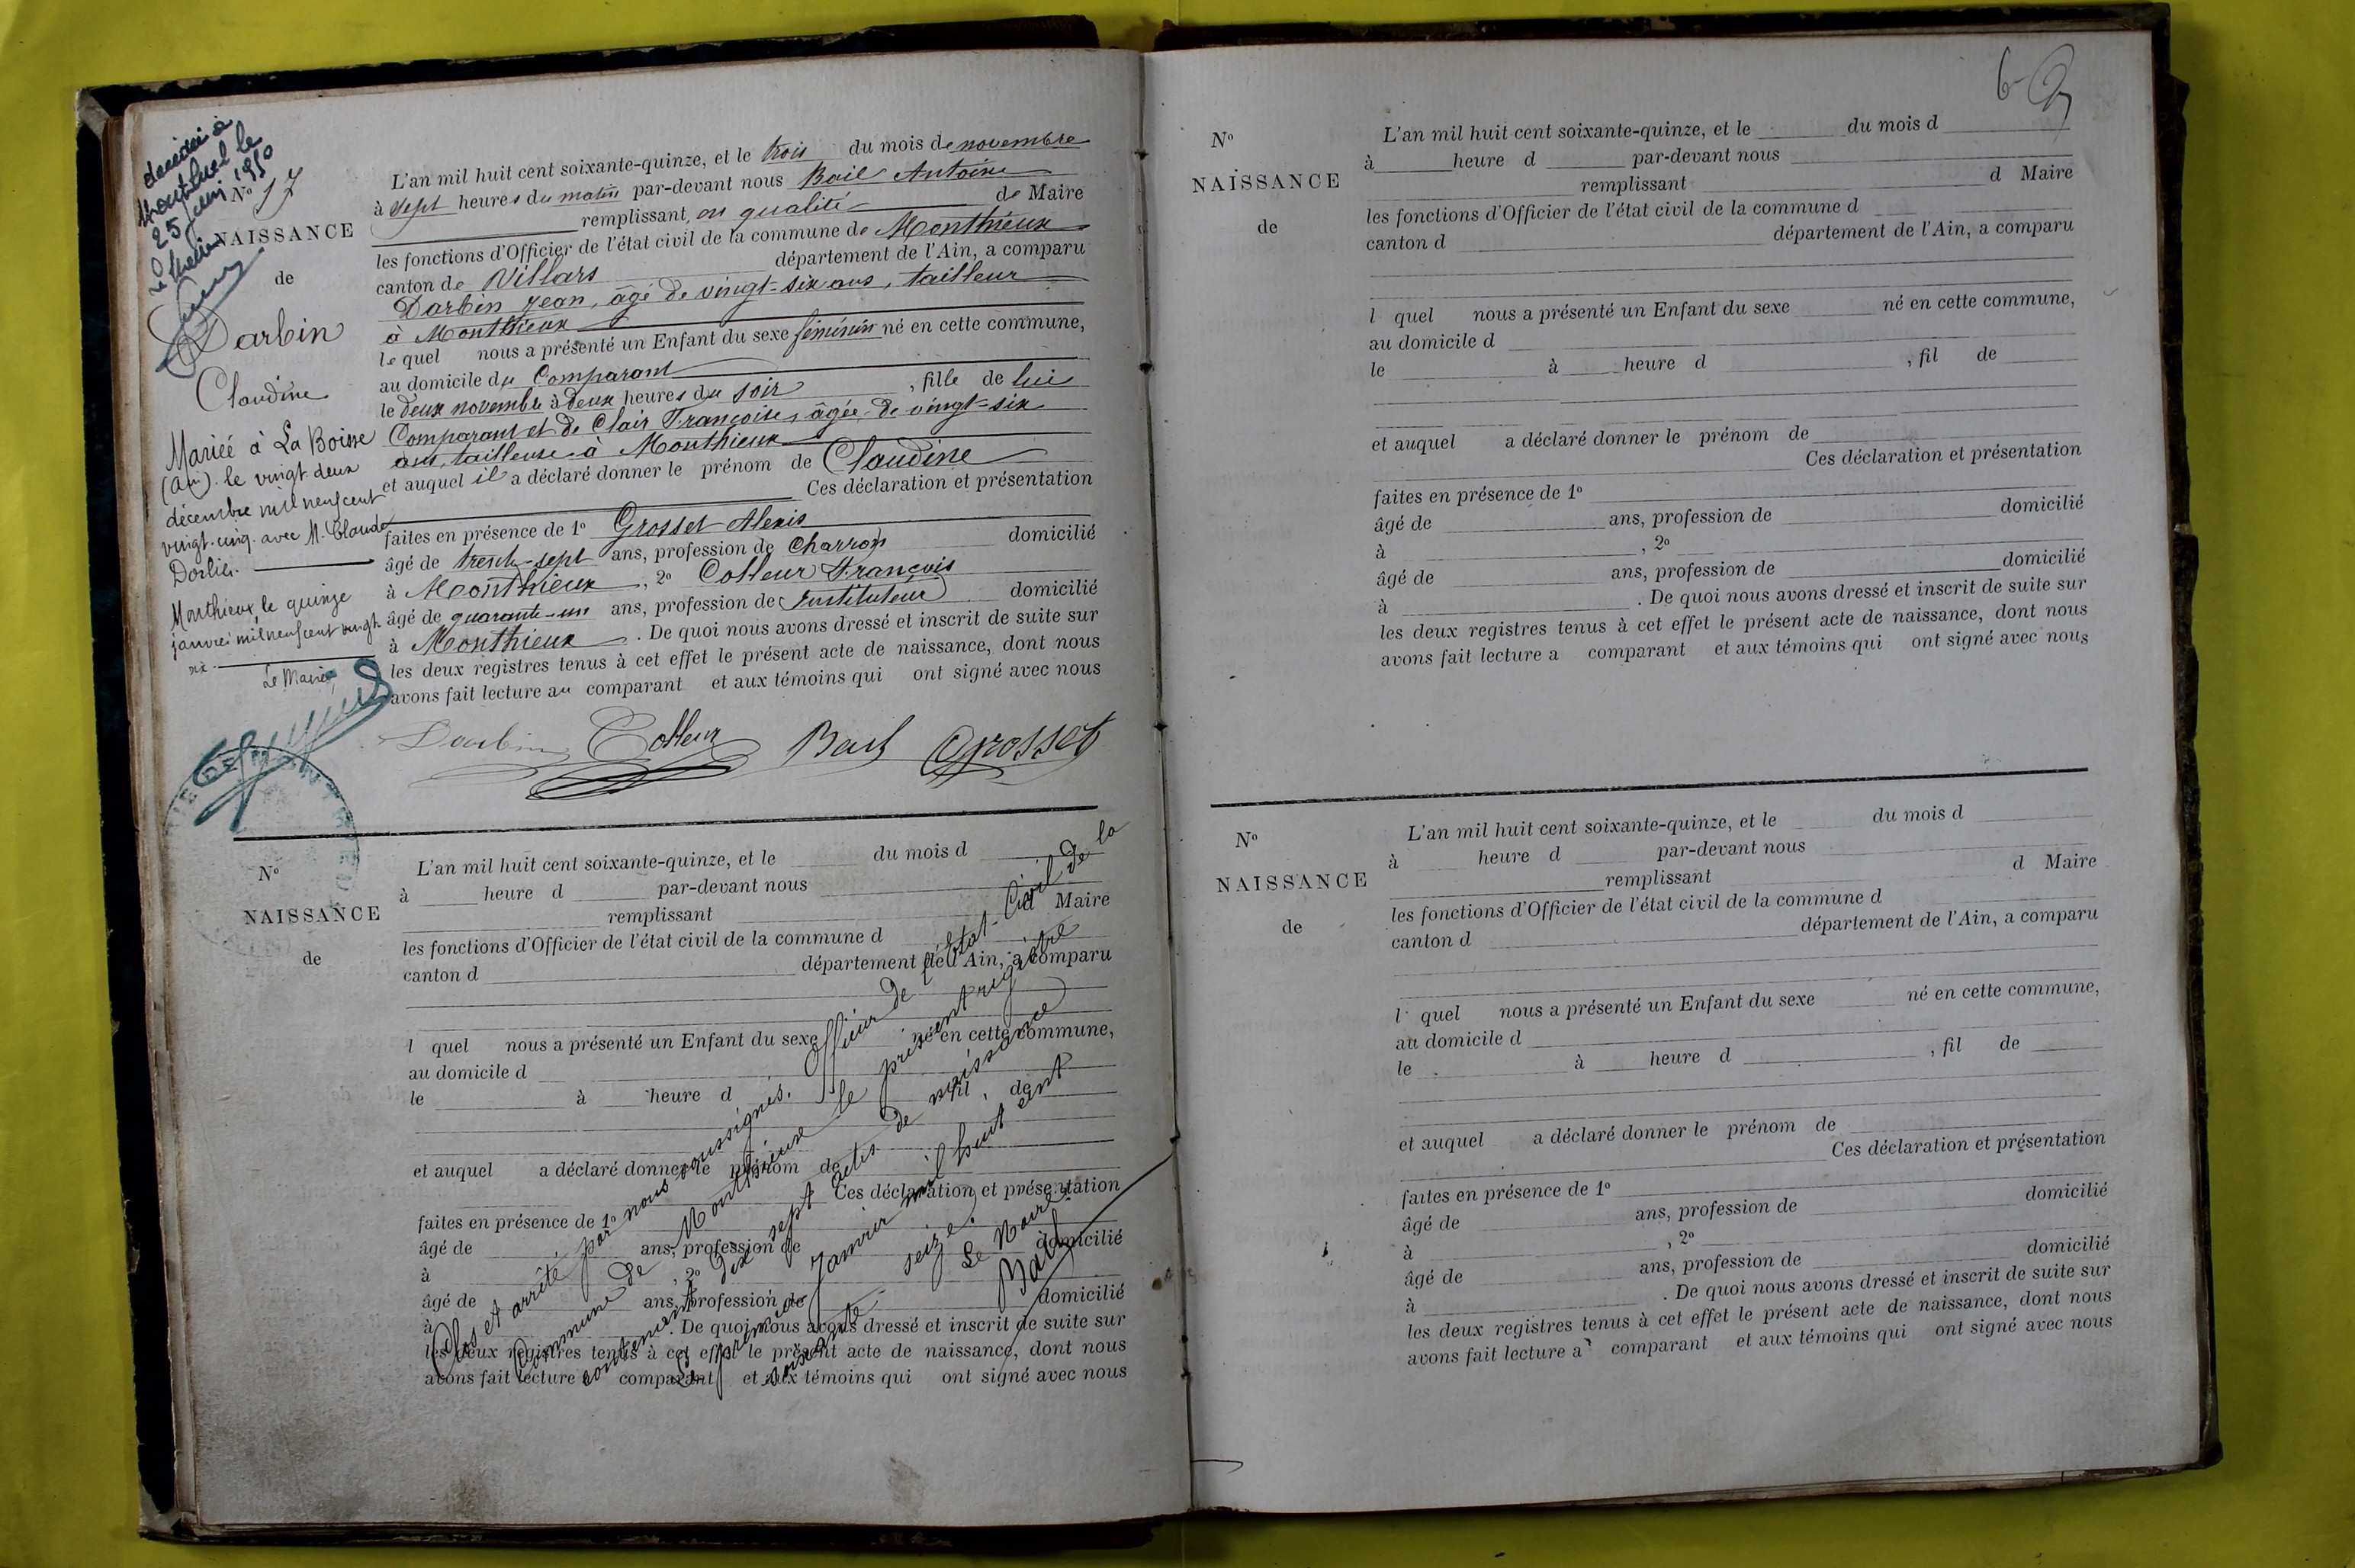 décédée à
Montluel le
25 juin 1950
Le Maire
N° 17
NAISSANCE
de
Darbin
Claudine
Mariée à La Boisse
(Ain) le vingt deux
décembre mil neuf cent
vingt-cinq avec M. Claude
Dorlier.
Monthieux le quinze
janvier mil neuf cent vingt
six.
Le Maire,
L'an mil huit cent soixante-quinze, et le trois du mois de novembre
à sept heures du matin par-devant nous Bail Antoine
remplissant en qualité de Maire
les fonctions d'Officier de l'état civil de la commune de Monthieux
canton de Villars département de l'Ain, a comparu
Darbin Jean, âgé de vingt-six ans, tailleur
à Monthieux
le quel nous a présenté un Enfant du sexe féminin né en cette commune,
au domicile du Comparant
le deux novembre à deux heures du soir , fille de lui
Comparant et de Clair Françoise, âgée de vingt-six
ans, tailleuse à Monthieux
et auquel il a déclaré donner le prénom de Claudine
Ces déclaration et présentation
faites en présence de 1° Grosset Alexis
âgé de trente-sept ans, profession de Charron domicilié
à Monthieux , 2° Colleur François
âgé de quarante-un ans, profession de Instituteur domicilié
à Monthieux . De quoi nous avons dressé et inscrit de suite sur
les deux registres tenus à cet effet le présent acte de naissance, dont nous
avons fait lecture au comparant et aux témoins qui ont signé avec nous
Darbin Colleur Bail Grosset
N°
NAISSANCE
de
L'an mil huit cent soixante-quinze, et le du mois d
à heure d par-devant nous
remplissant d Maire
les fonctions d'Officier de l'état civil de la commune d
canton d département de l'Ain, a comparu
l quel nous a présenté un Enfant du sexe né en cette commune,
au domicile d
le à heure d , fil de
et auquel a déclaré donner le prénom de
Ces déclaration et présentation
faites en présence de 1°
âgé de ans, profession de domicilié
à , 2°
âgé de ans, profession de domicilié
à . De quoi nous avons dressé et inscrit de suite sur
les deux registres tenus à cet effet le présent acte de naissance, dont nous
avons fait lecture a comparant et aux témoins qui ont signé avec nous
Clos et arrêté par nous soussignés. Officier de l'état-Civil de la
Commune de Monthieux le présent registre
contenant dix sept actes de naissance
Le premier Janvier mil huit cent
soixante seize.
Le Maire
Bail
6
N°
NAISSANCE
de
L'an mil huit cent soixante-quinze, et le du mois d
à heure d par-devant nous
remplissant d Maire
les fonctions d'Officier de l'état civil de la commune d
canton d département de l'Ain, a comparu
l quel nous a présenté un Enfant du sexe né en cette commune,
au domicile d
le à heure d , fil de
et auquel a déclaré donner le prénom de
Ces déclaration et présentation
faites en présence de 1°
âgé de ans, profession de domicilié
à , 2°
âgé de ans, profession de domicilié
à . De quoi nous avons dressé et inscrit de suite sur
les deux registres tenus à cet effet le présent acte de naissance, dont nous
avons fait lecture a comparant et aux témoins qui ont signé avec nous
N°
NAISSANCE
de
L'an mil huit cent soixante-quinze, et le du mois d
à heure d par-devant nous
remplissant d Maire
les fonctions d'Officier de l'état civil de la commune d
canton d département de l'Ain, a comparu
l quel nous a présenté un Enfant du sexe né en cette commune,
au domicile d
le à heure d , fil de
et auquel a déclaré donner le prénom de
Ces déclaration et présentation
faites en présence de 1°
âgé de ans, profession de domicilié
à , 2°
âgé de ans, profession de domicilié
à . De quoi nous avons dressé et inscrit de suite sur
les deux registres tenus à cet effet le présent acte de naissance, dont nous
avons fait lecture a comparant et aux témoins qui ont signé avec nous